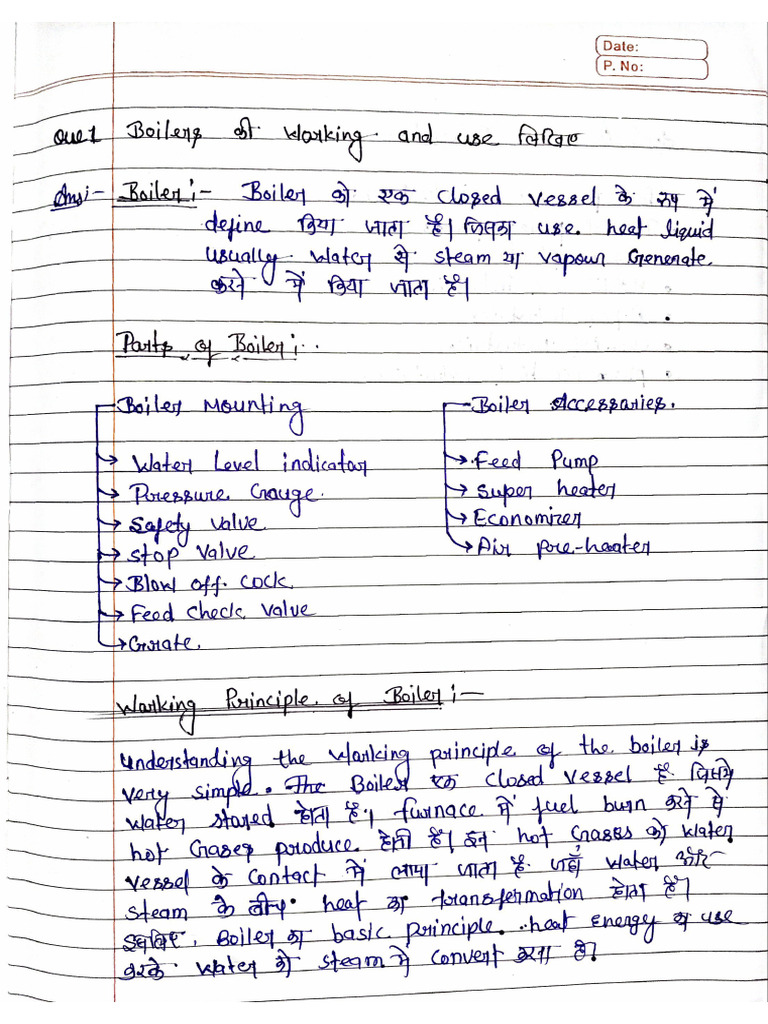 Date:
P. No:
Que1 Boilers की working and use लिखिए
Ans:- Boiler:- Boiler को एक closed vessel के रूप में
define किया जाता है। जिसका use heat liquid
usually water से steam या vapour Generate
करने में किया जाता है।
Parts of Boiler:
Boiler Mounting
Water Level indicator
Pressure Gauge
Safety valve
Stop valve
Blow off cock
Feed check valve
Grate
Boiler Accessaries.
Feed Pump
Super heater
Economizer
Air pre-heater
Working Principle of Boiler:-
Understanding the working principle of the boiler is
very simple. The Boiler एक closed vessel है जिसमे
water stored होता है। furnace में fuel burn करने से
hot Gases produce होती है। इन hot Gasses को water
vessel के contact में लाया जाता है जहाँ water और
steam के बीच heat का transformation होता है।
इसलिए Boiler का basic principle heat energy का use
करके water को steam मे convert करना है।